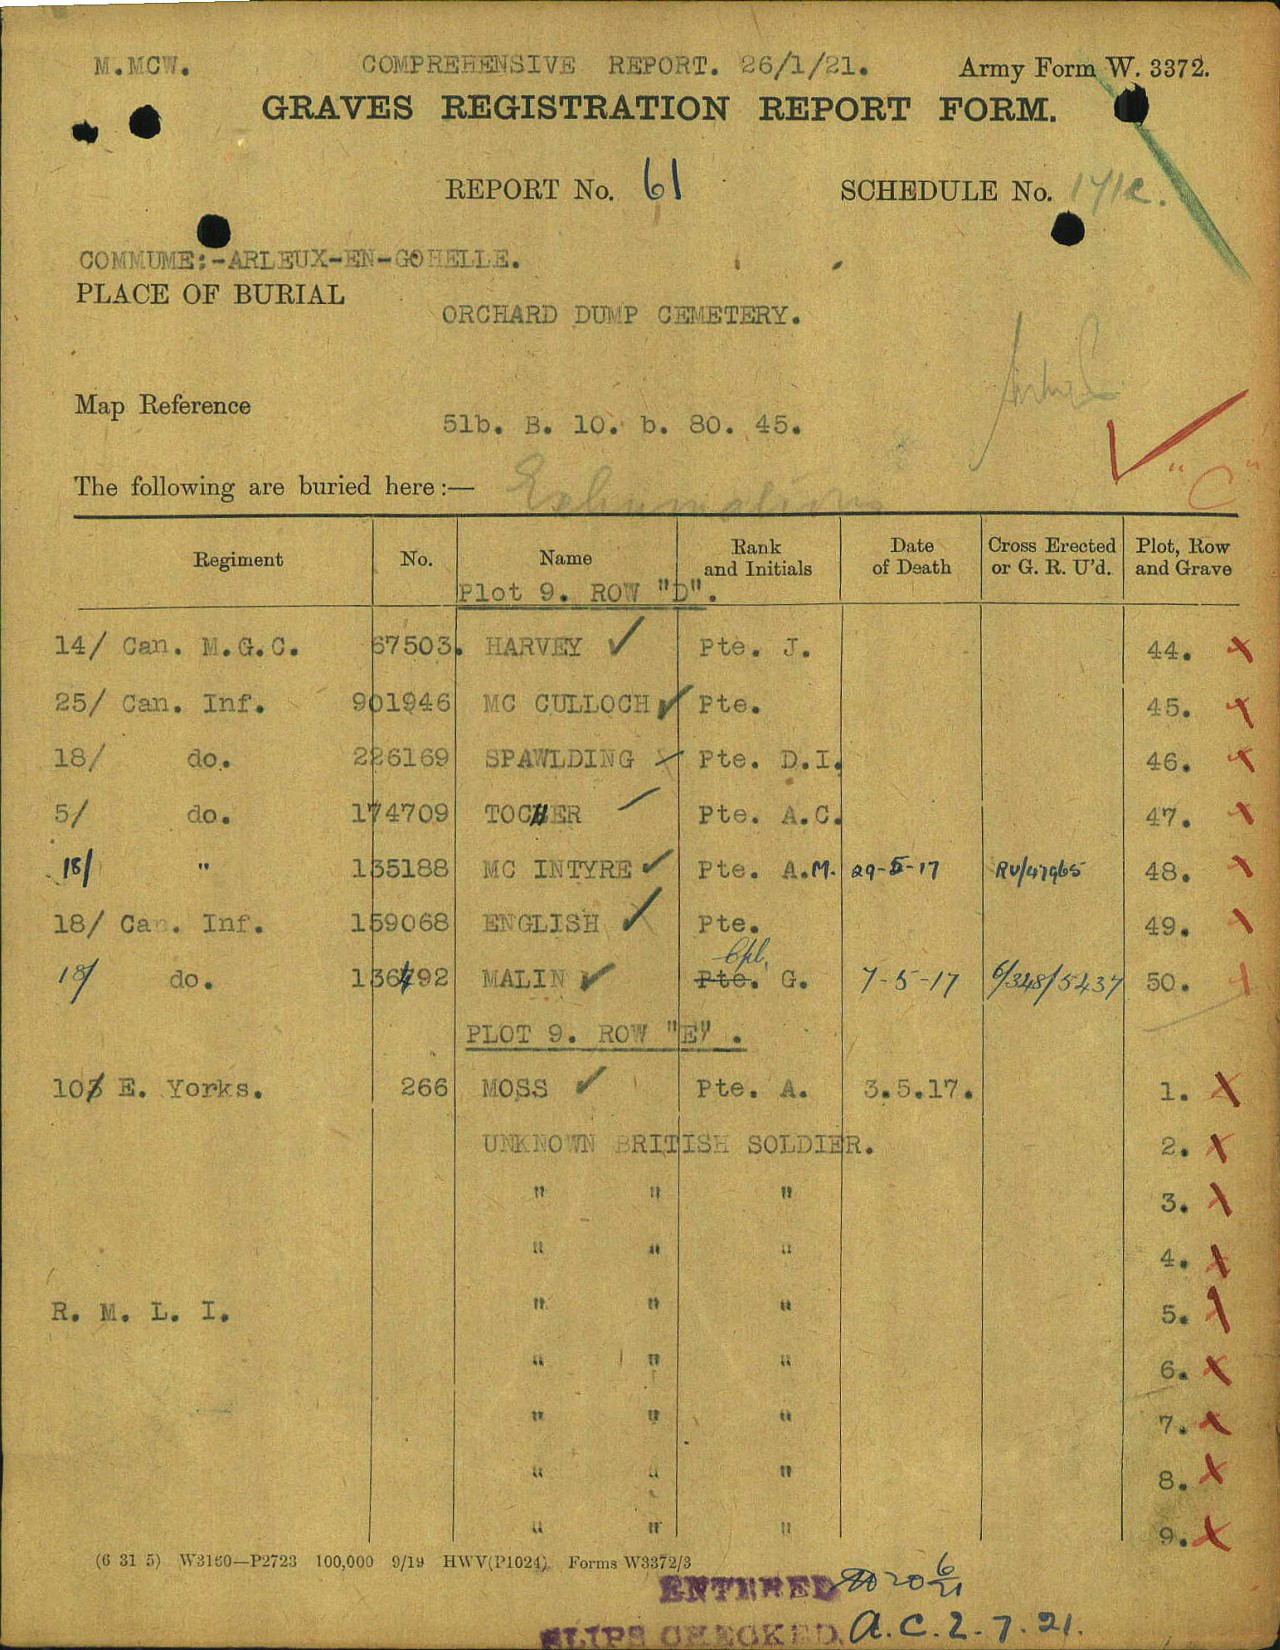 M.MCW. COMPREHENSIVE REPORT. 26/1/21. Army Form W. 3372.
GRAVES REGISTRATION REPORT FORM.
REPORT No. 61 SCHEDULE No.
COMMUME:-ARLEUX-EN-GOHELLE.
PLACE OF BURIAL
ORCHARD DUMP CEMETERY.
Map Reference
51b. B. 10. b. 80. 45.
"C"
The following are buried here:— Exhumations
Regiment No. Name Rank and Initials Date of Death Cross Erected or G. R. U'd. Plot, Row and Grave
Plot 9. ROW "D".
14/ Can. M.G.C. 67503. HARVEY ✓ Pte. J. 44. X
25/ Can. Inf. 901946 MC CULLOCH ✓ Pte. 45. X
18/ do. 226169 SPAWLDING Pte. D.I. 46. X
5/ do. 174709 TOCHER Pte. A.C. 47. X
18/ " 135188 MC INTYRE ✓ Pte. A.M. 29-5-17 RU/47965 48. X
18/ Can. Inf. 159068 ENGLISH ✓ Pte. 49. X
18/ do. 136792 MALIN ✓ Pte. Cpl. G. 7-5-17 6/348/5437 50. X
PLOT 9. ROW "E".
10/ E. Yorks. 266 MOSS ✓ Pte. A. 3.5.17. 1. X
UNKNOWN BRITISH SOLDIER. 2. X
" " " 3. X
" " " 4. X
R. M. L. I. " " " 5. X
" " " 6. X
" " " 7. X
" " " 8. X
" " " 9. X
(6 31 5) W3160—P2723 100,000 9/19 HWV(P1024) Forms W3372/3
ENTERED 20 6/21
SLIPS CHECKED. A.C. 2.7.21.